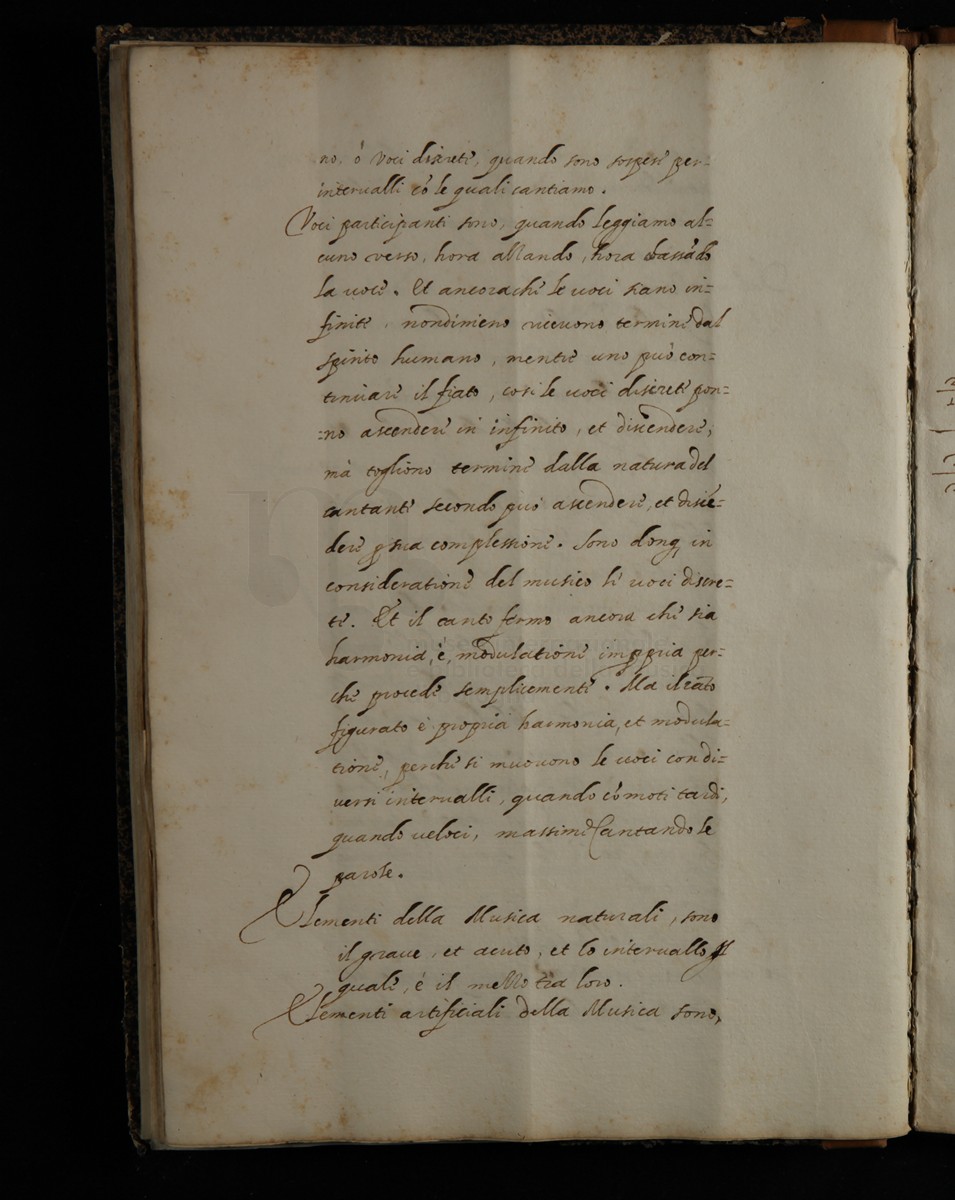 no, ò Voci discrete, quando sono sospese per-
intervalli cõ le quali cantiamo.
Voci participanti sono, quando leggiamo al=
cuno verso, hora alzando, hora bassãdo
la voce. Et ancorache le voci siano in=
finite, nondimeno ricevono termine dal
spirito humano, mentre uno può con=
tinuare il fiato, cosi le voci discrete pon=
=no ascendere in infinito, et discendere,
mà togliono termine dalla natura del
cantante secondo può ascendere, et discẽ=
dere ꝑ sua complessione. Sono donq, in
consideratione del musico le voci discre=
te. Et il canto fermo ancora che sia
harmonia, è, modulatione impꝓpria per=
che procede semplicemente. Ma il cãto
figurato è propria harmonia, et modula=
tione, perche si muovono le voci con di=
versi intervalli, quando cõ moti tardi,
quando veloci, massime Cantando le
parole.
Elementi della Musica naturali, sono
il grave, et acuto, et lo intervallo il
quale, è il mezzo tra loro.
Elementi artificiali della Musica sono,